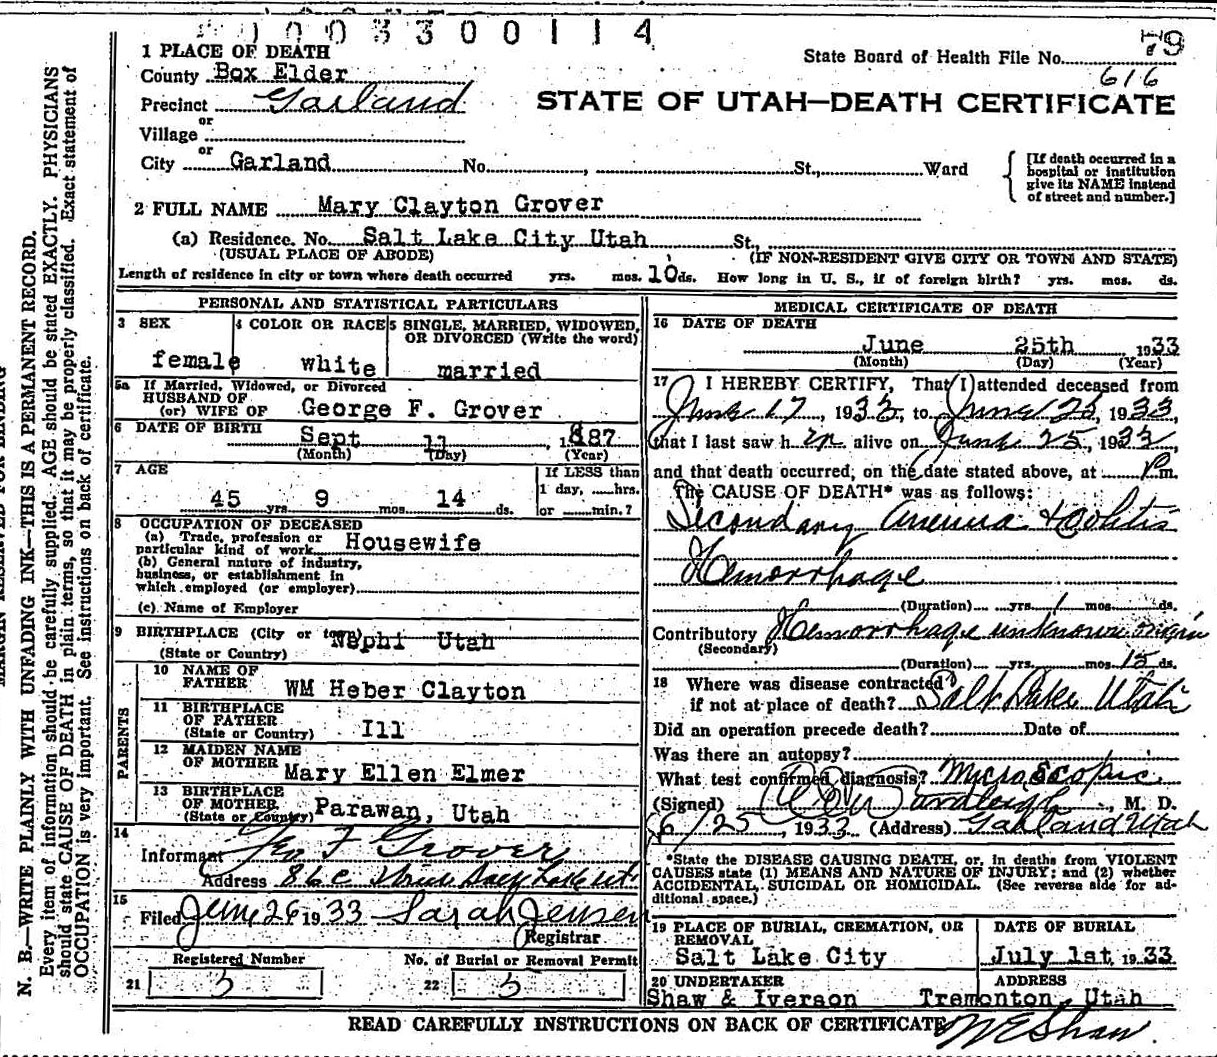 1003300114
79
State Board of Health File No. 616
1 PLACE OF DEATH
County Box Elder
Precinct Garland
or
Village
or
City Garland No. , St., Ward
STATE OF UTAH—DEATH CERTIFICATE
[If death occurred in a
hospital or institution
give its NAME instead
of street and number.]
2 FULL NAME Mary Clayton Grover
(a) Residence. No. Salt Lake City Utah St.,
(USUAL PLACE OF ABODE) (IF NON-RESIDENT GIVE CITY OR TOWN AND STATE)
Length of residence in city or town where death occurred yrs. mos. 10 ds. How long in U. S., if of foreign birth? yrs. mos. ds.
PERSONAL AND STATISTICAL PARTICULARS
3 SEX
female
4 COLOR OR RACE
white
5 SINGLE, MARRIED, WIDOWED,
OR DIVORCED (Write the word)
married
5a If Married, Widowed, or Divorced
HUSBAND OF
(or) WIFE OF George F. Grover
6 DATE OF BIRTH Sept 11 , 1887
(Month) (Day) (Year)
7 AGE
45 yrs. 9 mos. 14 ds.
If LESS than
1 day, hrs.
or min.?
8 OCCUPATION OF DECEASED
(a) Trade, profession or
particular kind of work Housewife
(b) General nature of industry,
business, or establishment in
which employed (or employer)
(c) Name of Employer
9 BIRTHPLACE (City or town) Nephi Utah
(State or Country)
PARENTS
10 NAME OF
FATHER WM Heber Clayton
11 BIRTHPLACE
OF FATHER
(State or Country) Ill
12 MAIDEN NAME
OF MOTHER Mary Ellen Elmer
13 BIRTHPLACE
OF MOTHER
(State or Country) Parawan, Utah
14
Informant Geo F Grover
Address 86 C
15
Filed June 26 1933 Sarah Jensen
Registrar
Registered Number
21 5
No. of Burial or Removal Permit
22 5
MEDICAL CERTIFICATE OF DEATH
16 DATE OF DEATH
June 25th 1933
(Month) (Day) (Year)
17 I HEREBY CERTIFY, That I attended deceased from
June 17, 1933, to June 25, 1933,
that I last saw h er alive on June 25, 1933
and that death occurred, on the date stated above, at P m.
The CAUSE OF DEATH* was as follows:
Secondary Anemia & Colitis
Hemorrhage
(Duration) yrs. 1 mos. ds.
Contributory Hemorrhage unknown origin
(Secondary)
(Duration) yrs. mos. 15 ds.
18 Where was disease contracted
if not at place of death? Salt Lake Utah
Did an operation precede death? Date of
Was there an autopsy?
What test confirmed diagnosis? Microscopic
(Signed) , M. D.
6/25, 1933 (Address) Garland Utah
*State the DISEASE CAUSING DEATH, or, in deaths from VIOLENT
CAUSES state (1) MEANS AND NATURE OF INJURY; and (2) whether
ACCIDENTAL, SUICIDAL OR HOMICIDAL. (See reverse side for ad-
ditional space.)
19 PLACE OF BURIAL, CREMATION, OR
REMOVAL
Salt Lake City
DATE OF BURIAL
July 1st, 1933
20 UNDERTAKER
Shaw & Iverson
ADDRESS
Tremonton, Utah
READ CAREFULLY INSTRUCTIONS ON BACK OF CERTIFICATE
W E Shaw
MARGIN RESERVED FOR BINDING
N. B.—WRITE PLAINLY WITH UNFADING INK—THIS IS A PERMANENT RECORD.
Every item of information should be carefully supplied. AGE should be stated EXACTLY. PHYSICIANS
should state CAUSE OF DEATH in plain terms, so that it may be properly classified. Exact statement of
OCCUPATION is very important. See instructions on back of certificate.